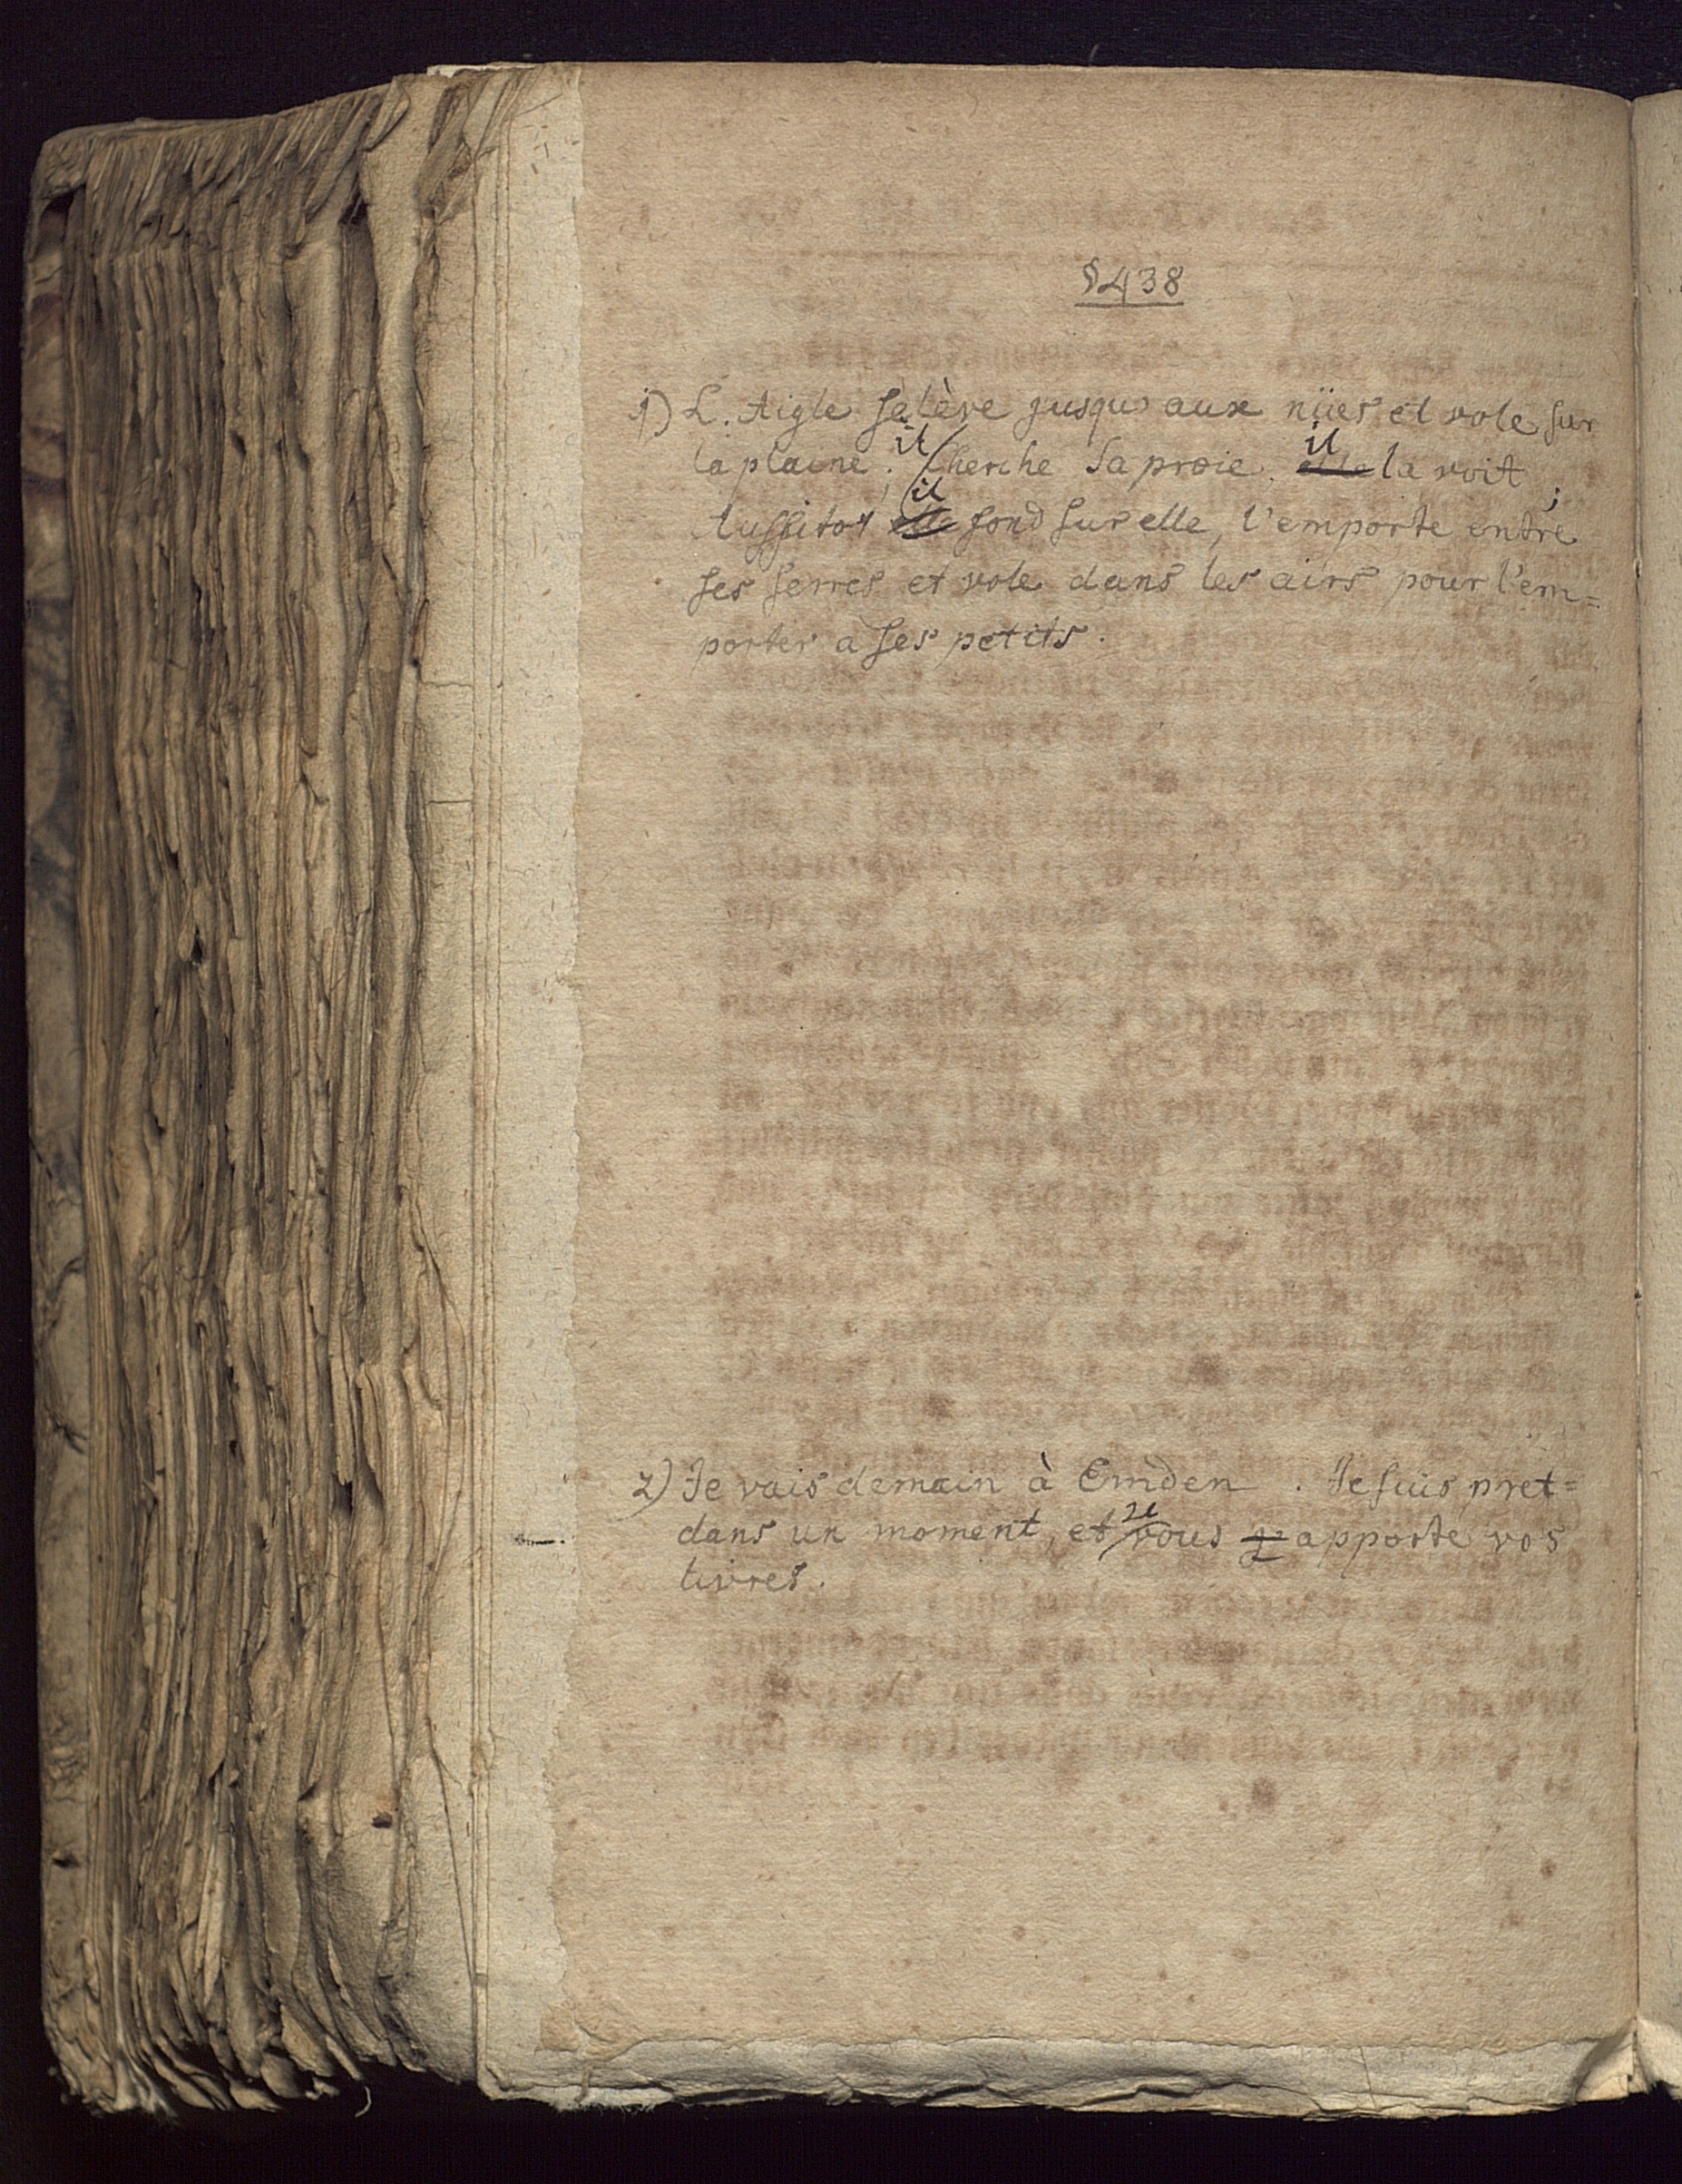 § 438
1) L. Aigle s'elève jusqu' aux nües et vole sur
la plaine; il cherche sa proie, il la voit;
Aussitot il fond sur elle, l'emporte entre
ses serres et vole dans les airs pour l'em=
porter a ses petits.
2) Je vais demain à Emden. Je suis pret=
dans un moment, et je vous apporte vos
livres.